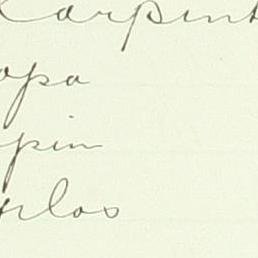 Carpint
opa
pin
rlos